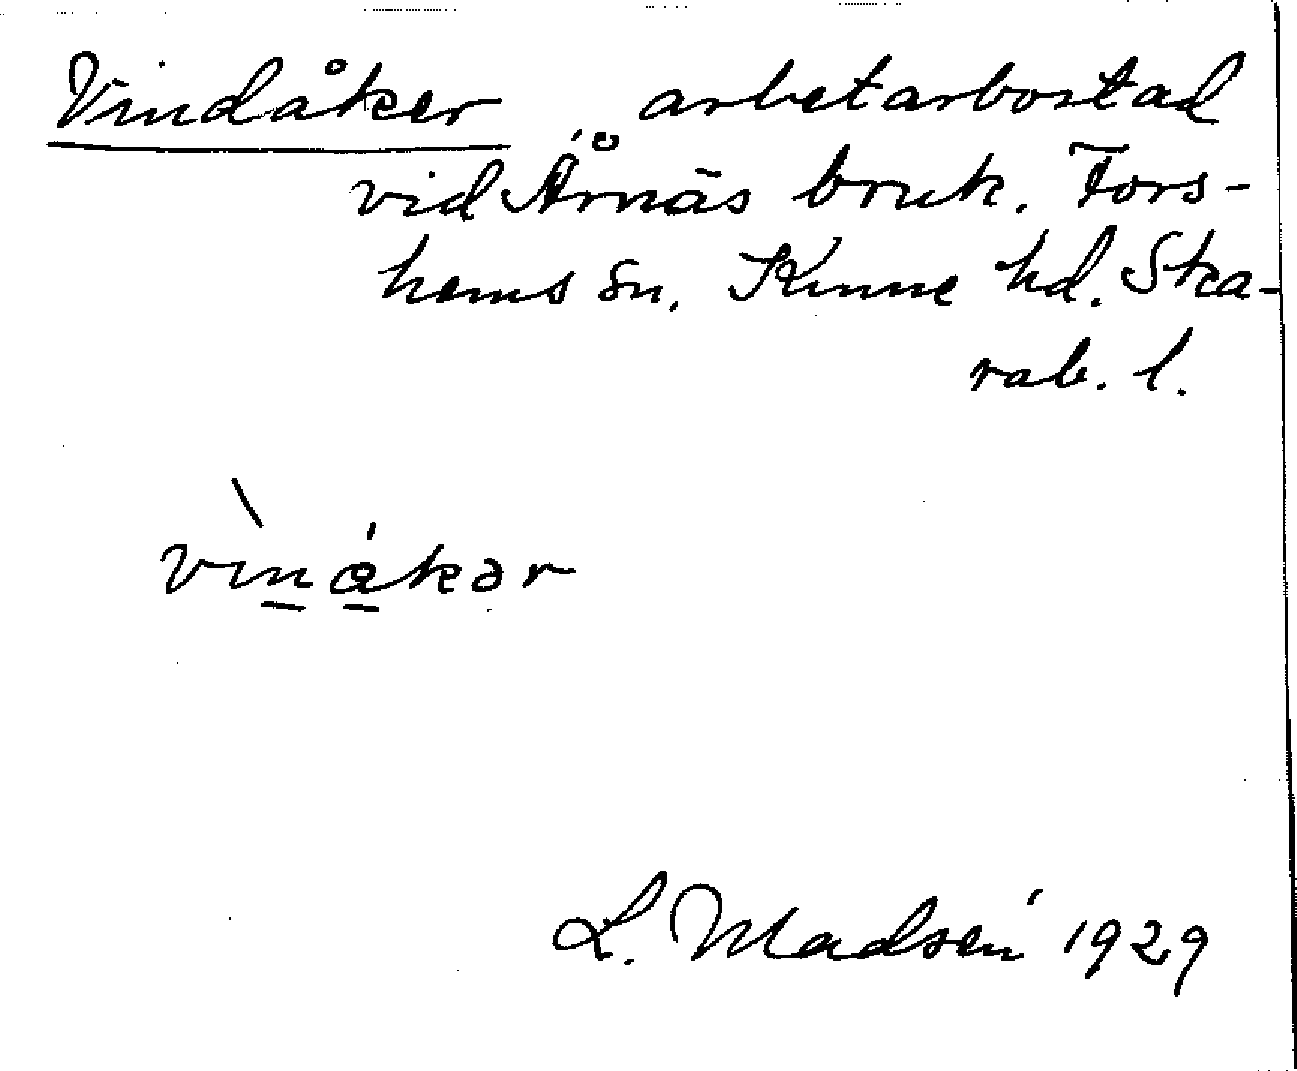 Vindåker arbetarbostad
vid Årnäs bruk. Fors-
hems sn. Kinne hd. Ska-
rab. l.
vìnåkər
L. Madsén 1929